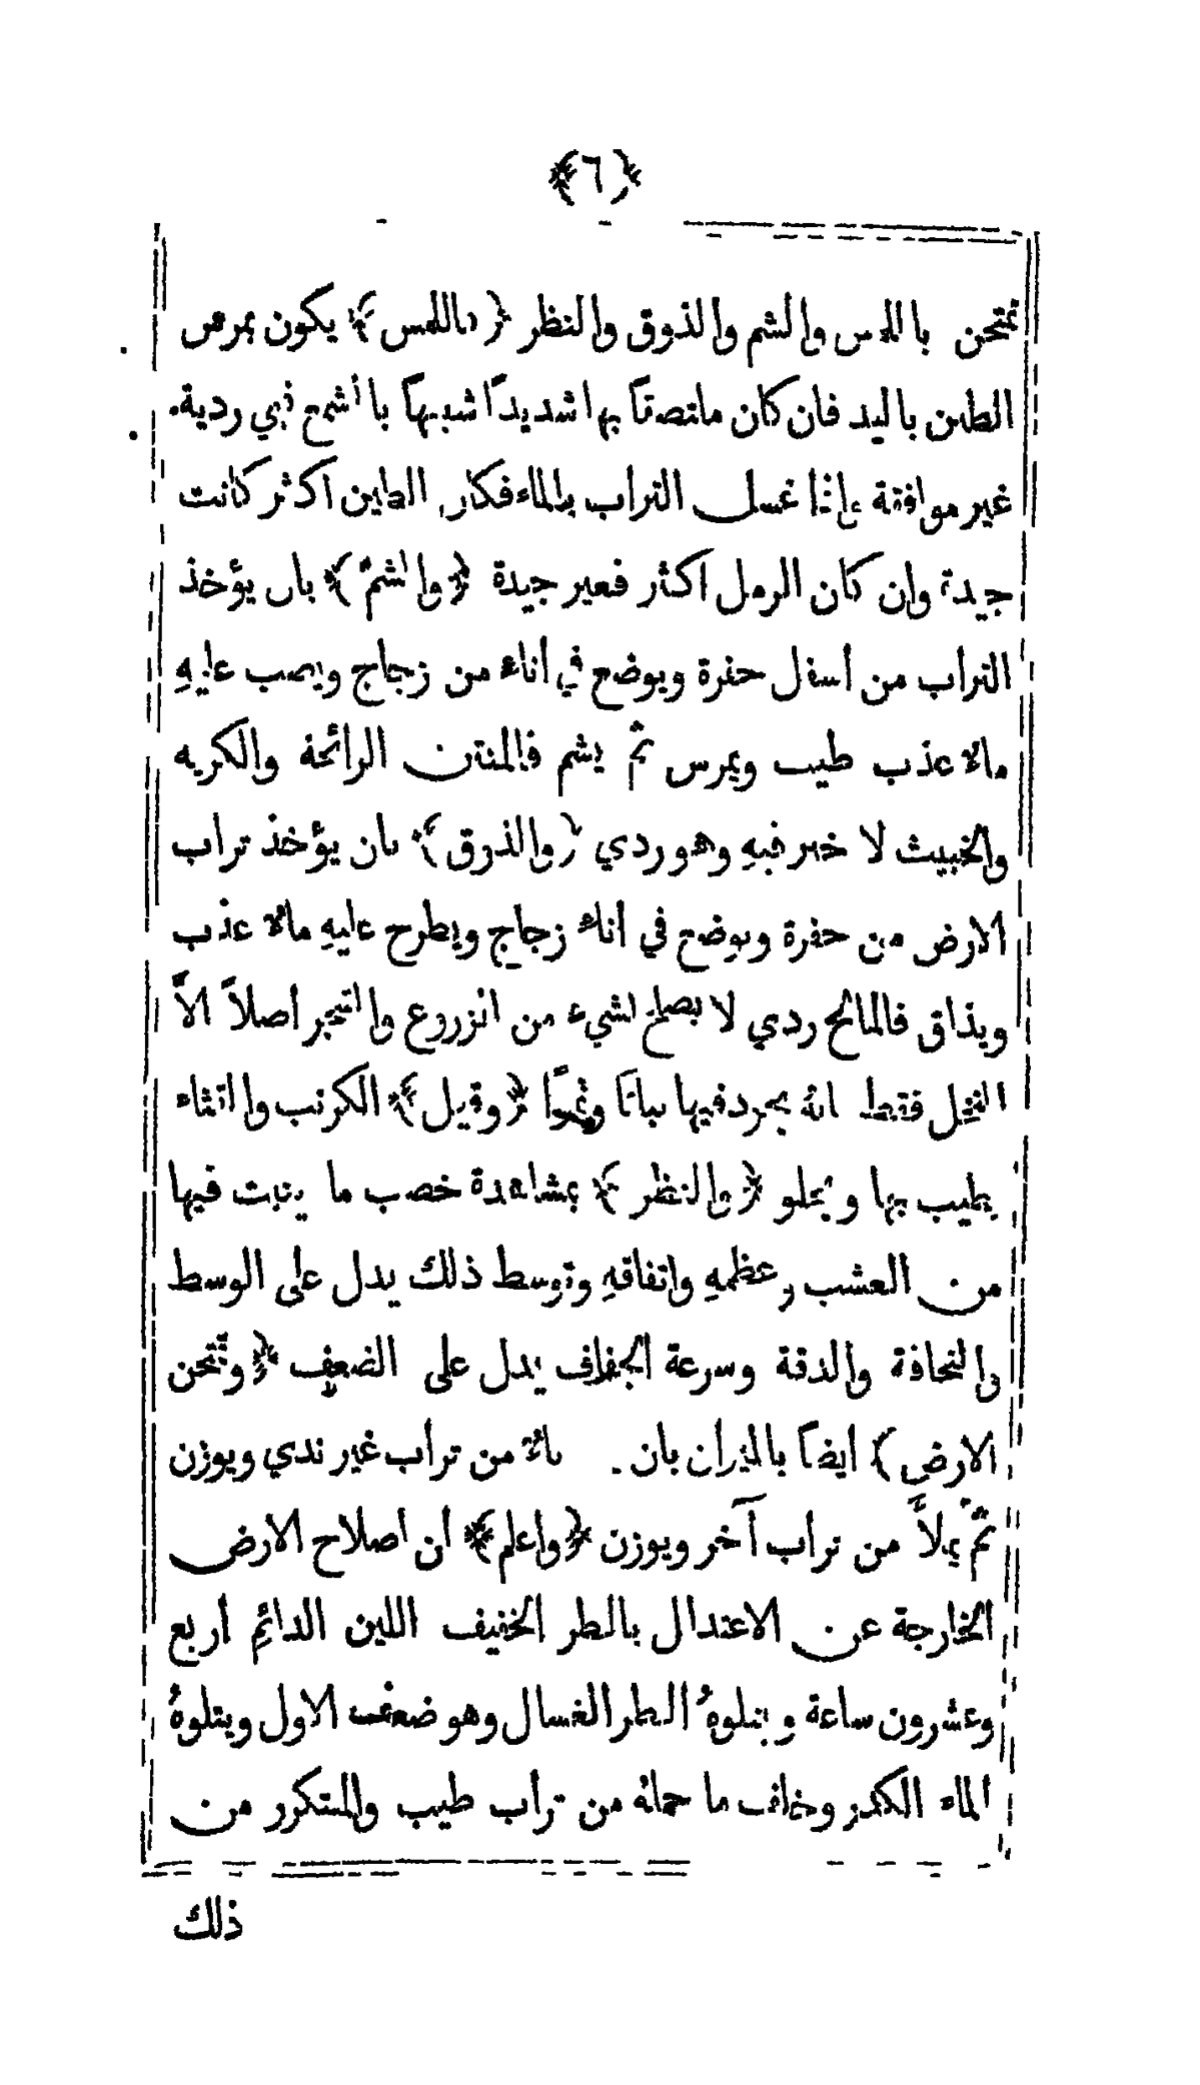 ﴿٦﴾
تمتحن باللمس والشم والذوق والنظر ﴿فاللمس﴾ يكون بمرس
الطين باليد فان كان ملتصقًا بها شديدًا شبيهًا بالشمع فهي ردية
غير موافقة واذا غسل التراب بالماء فكان الطين اكثر كانت
جيدة وان كان الرمل اكثر فغير جيدة ﴿والشمّ﴾ بان يؤخذ
التراب من أسفل حفرة ويوضع في أناء من زجاج ويصب عليهِ
مالا عذب طيب ويمرس ثم يشم فالمنتن الرائحة والكريه
والخبيث لا خير فيهِ وهو ردي ﴿والذوق﴾ بان يؤخذ تراب
الارض من حفرة ويوضع في أناء زجاج ويطرح عليهِ مالا عذب
ويذاق فالمالح ردي لا يصلح لشيء من الزروع والشجر أصلاً الاَّ
النخل فقط انهُ يجود فيها نباتًا وثمرًا ﴿وقيل﴾ الكرنب والقثاء
يطيب بها ويحلو ﴿والنظر﴾ بمشاهدة خصب ما ينبت فيها
من العشب وعظمهِ واتفاقهِ وتوسط ذلك يدل على الوسط
والنحافة والدقة وسرعة الجفاف يدل على الضعف ﴿وتمتحن
الارض﴾ ايضًا بالميزان بان من تراب غير ندي ويوزن
ثمّ يملأَ من تراب آخر ويوزن ﴿واعلم﴾ أن اصلاح الارض
الخارجة عن الاعتدال بالمطر الخفيف اللين الدائم أربع
وعشرون ساعة ويتلوهُ المطر الغسال وهو ضعف الاول ويتلوهُ
الماء الكدر وخلف ما حملهُ من تراب طيب والمتكرر من
ذلك